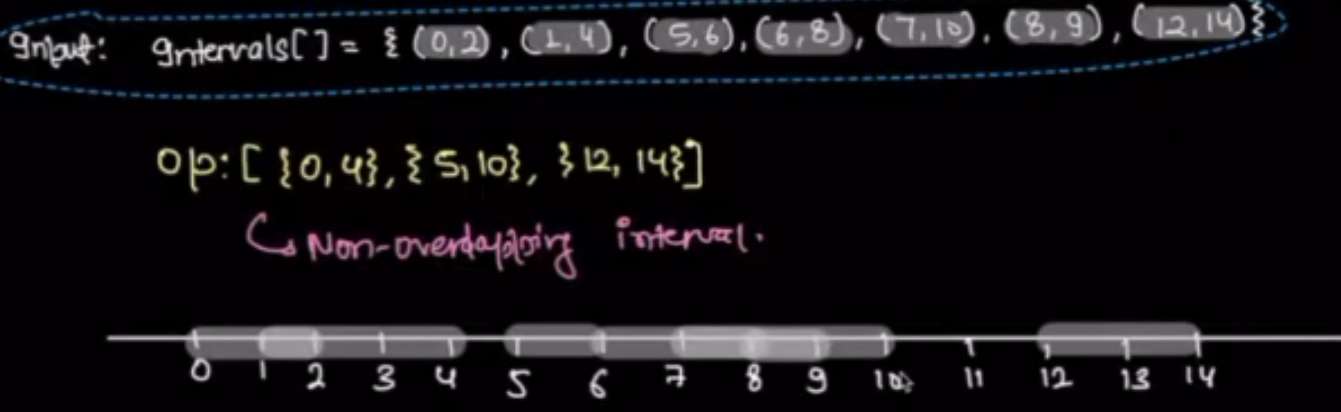 Input: Intervals[] = { (0,2), (1,4), (5,6), (6,8), (7,10), (8,9), (12,14) }
O/p: [ {0,4}, { 5,10}, } 12, 14}]
↳ Non-overlapping interval.
0 1 2 3 4 5 6 7 8 9 10 11 12 13 14